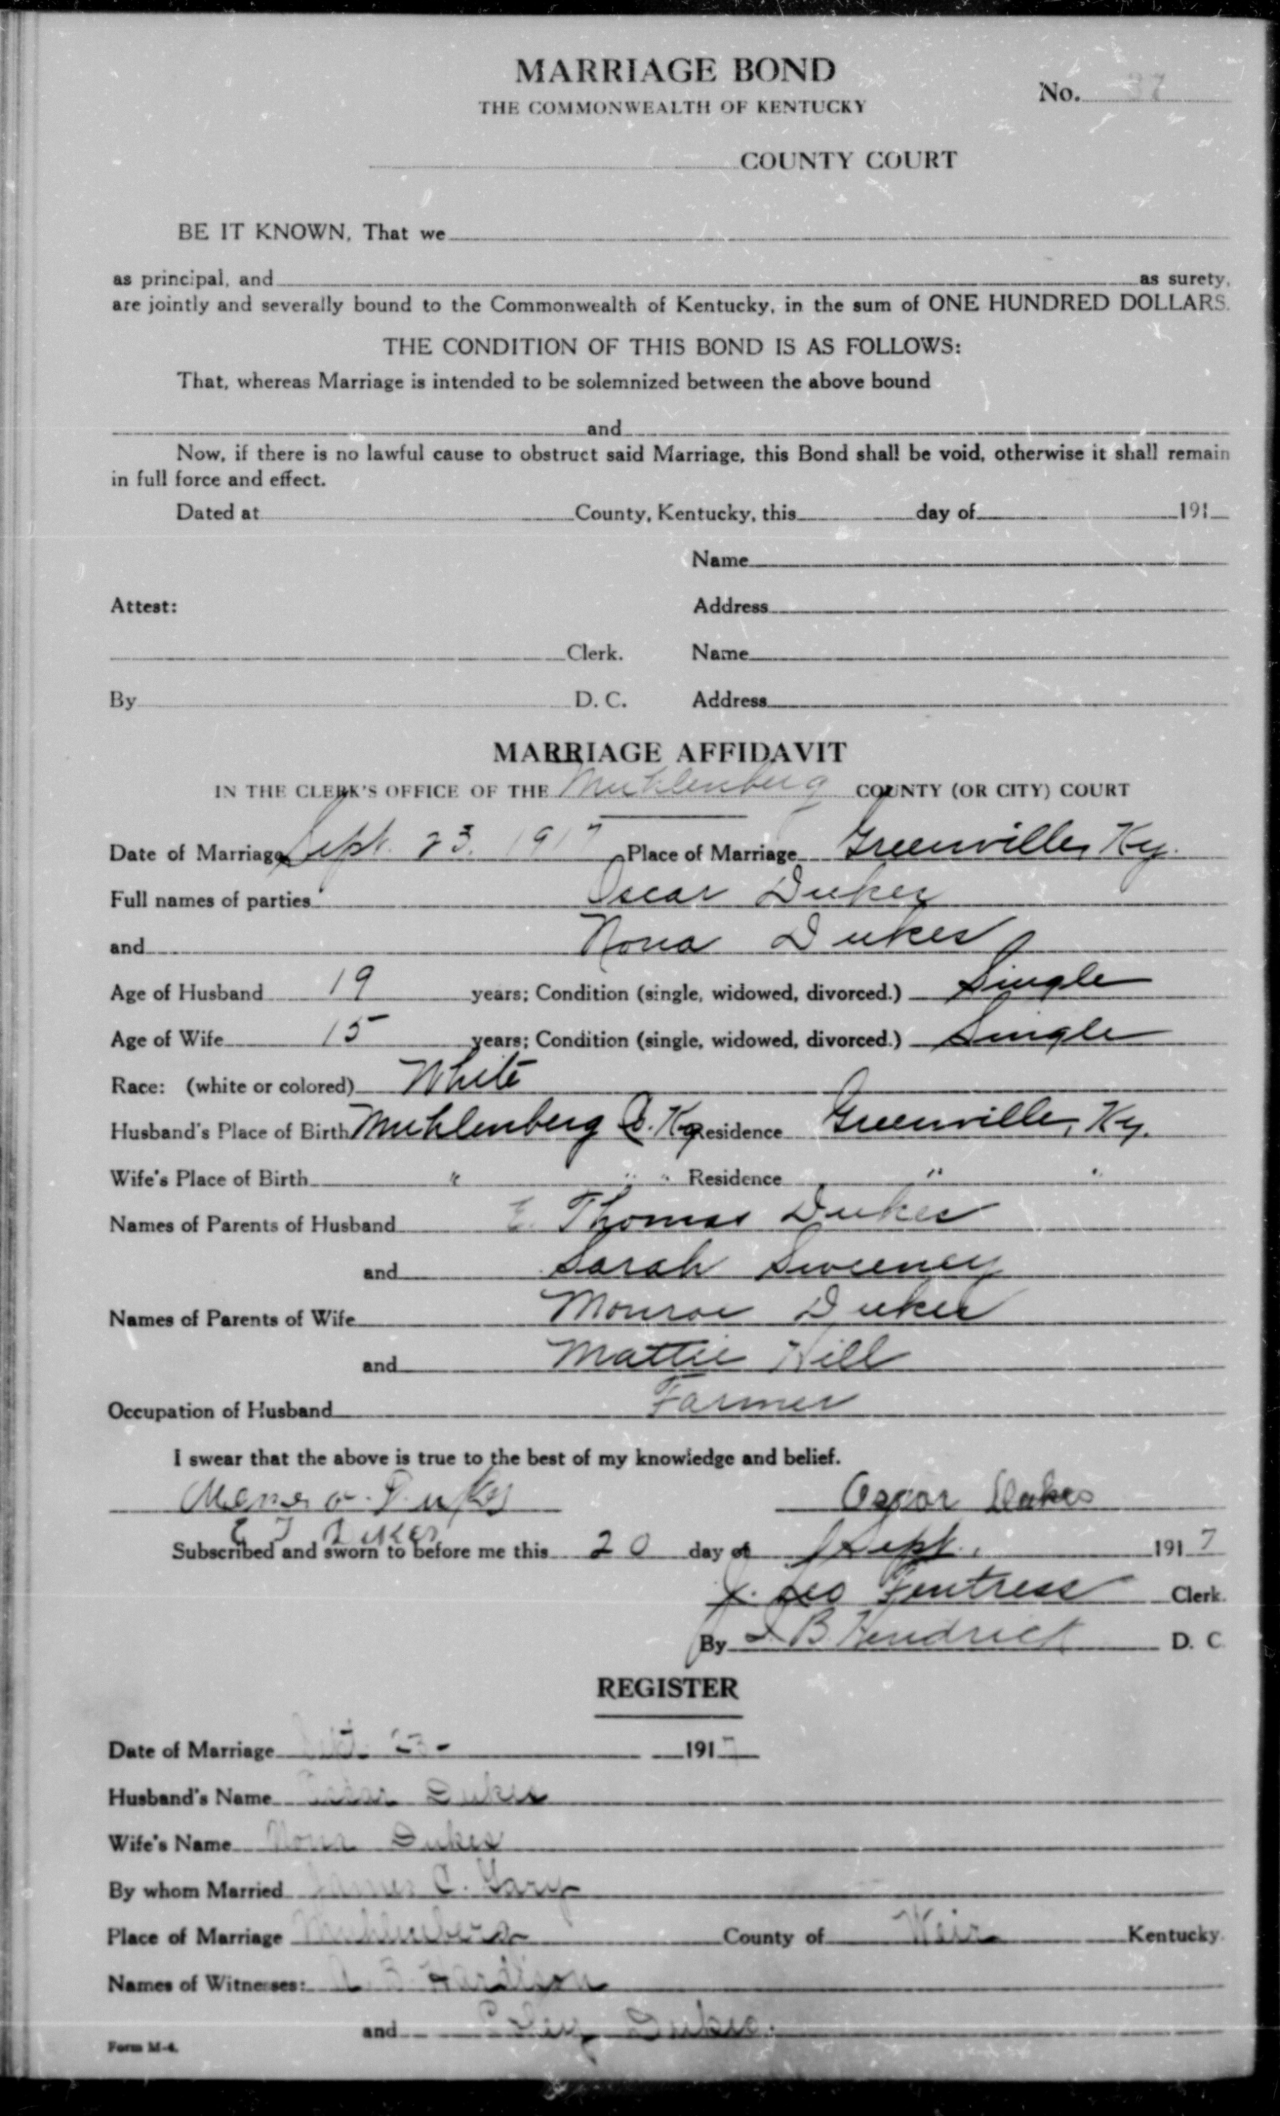 MARRIAGE BOND
THE COMMONWEALTH OF KENTUCKY
No. 37
COUNTY COURT
BE IT KNOWN, That we
as principal, and as surety,
are jointly and severally bound to the Commonwealth of Kentucky, in the sum of ONE HUNDRED DOLLARS.
THE CONDITION OF THIS BOND IS AS FOLLOWS:
That, whereas Marriage is intended to be solemnized between the above bound
and
Now, if there is no lawful cause to obstruct said Marriage, this Bond shall be void, otherwise it shall remain
in full force and effect.
Dated at County, Kentucky, this day of 191
Name
Attest: Address
Clerk. Name
By D. C. Address
MARRIAGE AFFIDAVIT
IN THE CLERK'S OFFICE OF THE Muhlenberg COUNTY (OR CITY) COURT
Date of Marriage Sept. 23. 1917 Place of Marriage Greenville, Ky.
Full names of parties Oscar Dukes
and Nona Dukes
Age of Husband 19 years; Condition (single, widowed, divorced.) Single
Age of Wife 15 years; Condition (single, widowed, divorced.) Single
Race: (white or colored) White
Husband's Place of Birth Muhlenberg C. Ky Residence Greenville, Ky.
Wife's Place of Birth " " " Residence " "
Names of Parents of Husband E. Thomas Dukes
and Sarah Sweeney
Names of Parents of Wife Monroe Dukes
and Mattie Hill
Occupation of Husband Farmer
I swear that the above is true to the best of my knowledge and belief.
Dukes Oscar Dukes
E T Dukes
Subscribed and sworn to before me this 20 day of Sept. 1917
J. Leo Fentress Clerk.
By J B Kendrick D. C.
REGISTER
Date of Marriage Sept. 23- 1917
Husband's Name Oscar Dukes
Wife's Name Nona Dukes
By whom Married James C. Gary
Place of Marriage Muhlenberg County of Weir Kentucky.
Names of Witnesses: Hardison
and Dukes.
Form M-4.